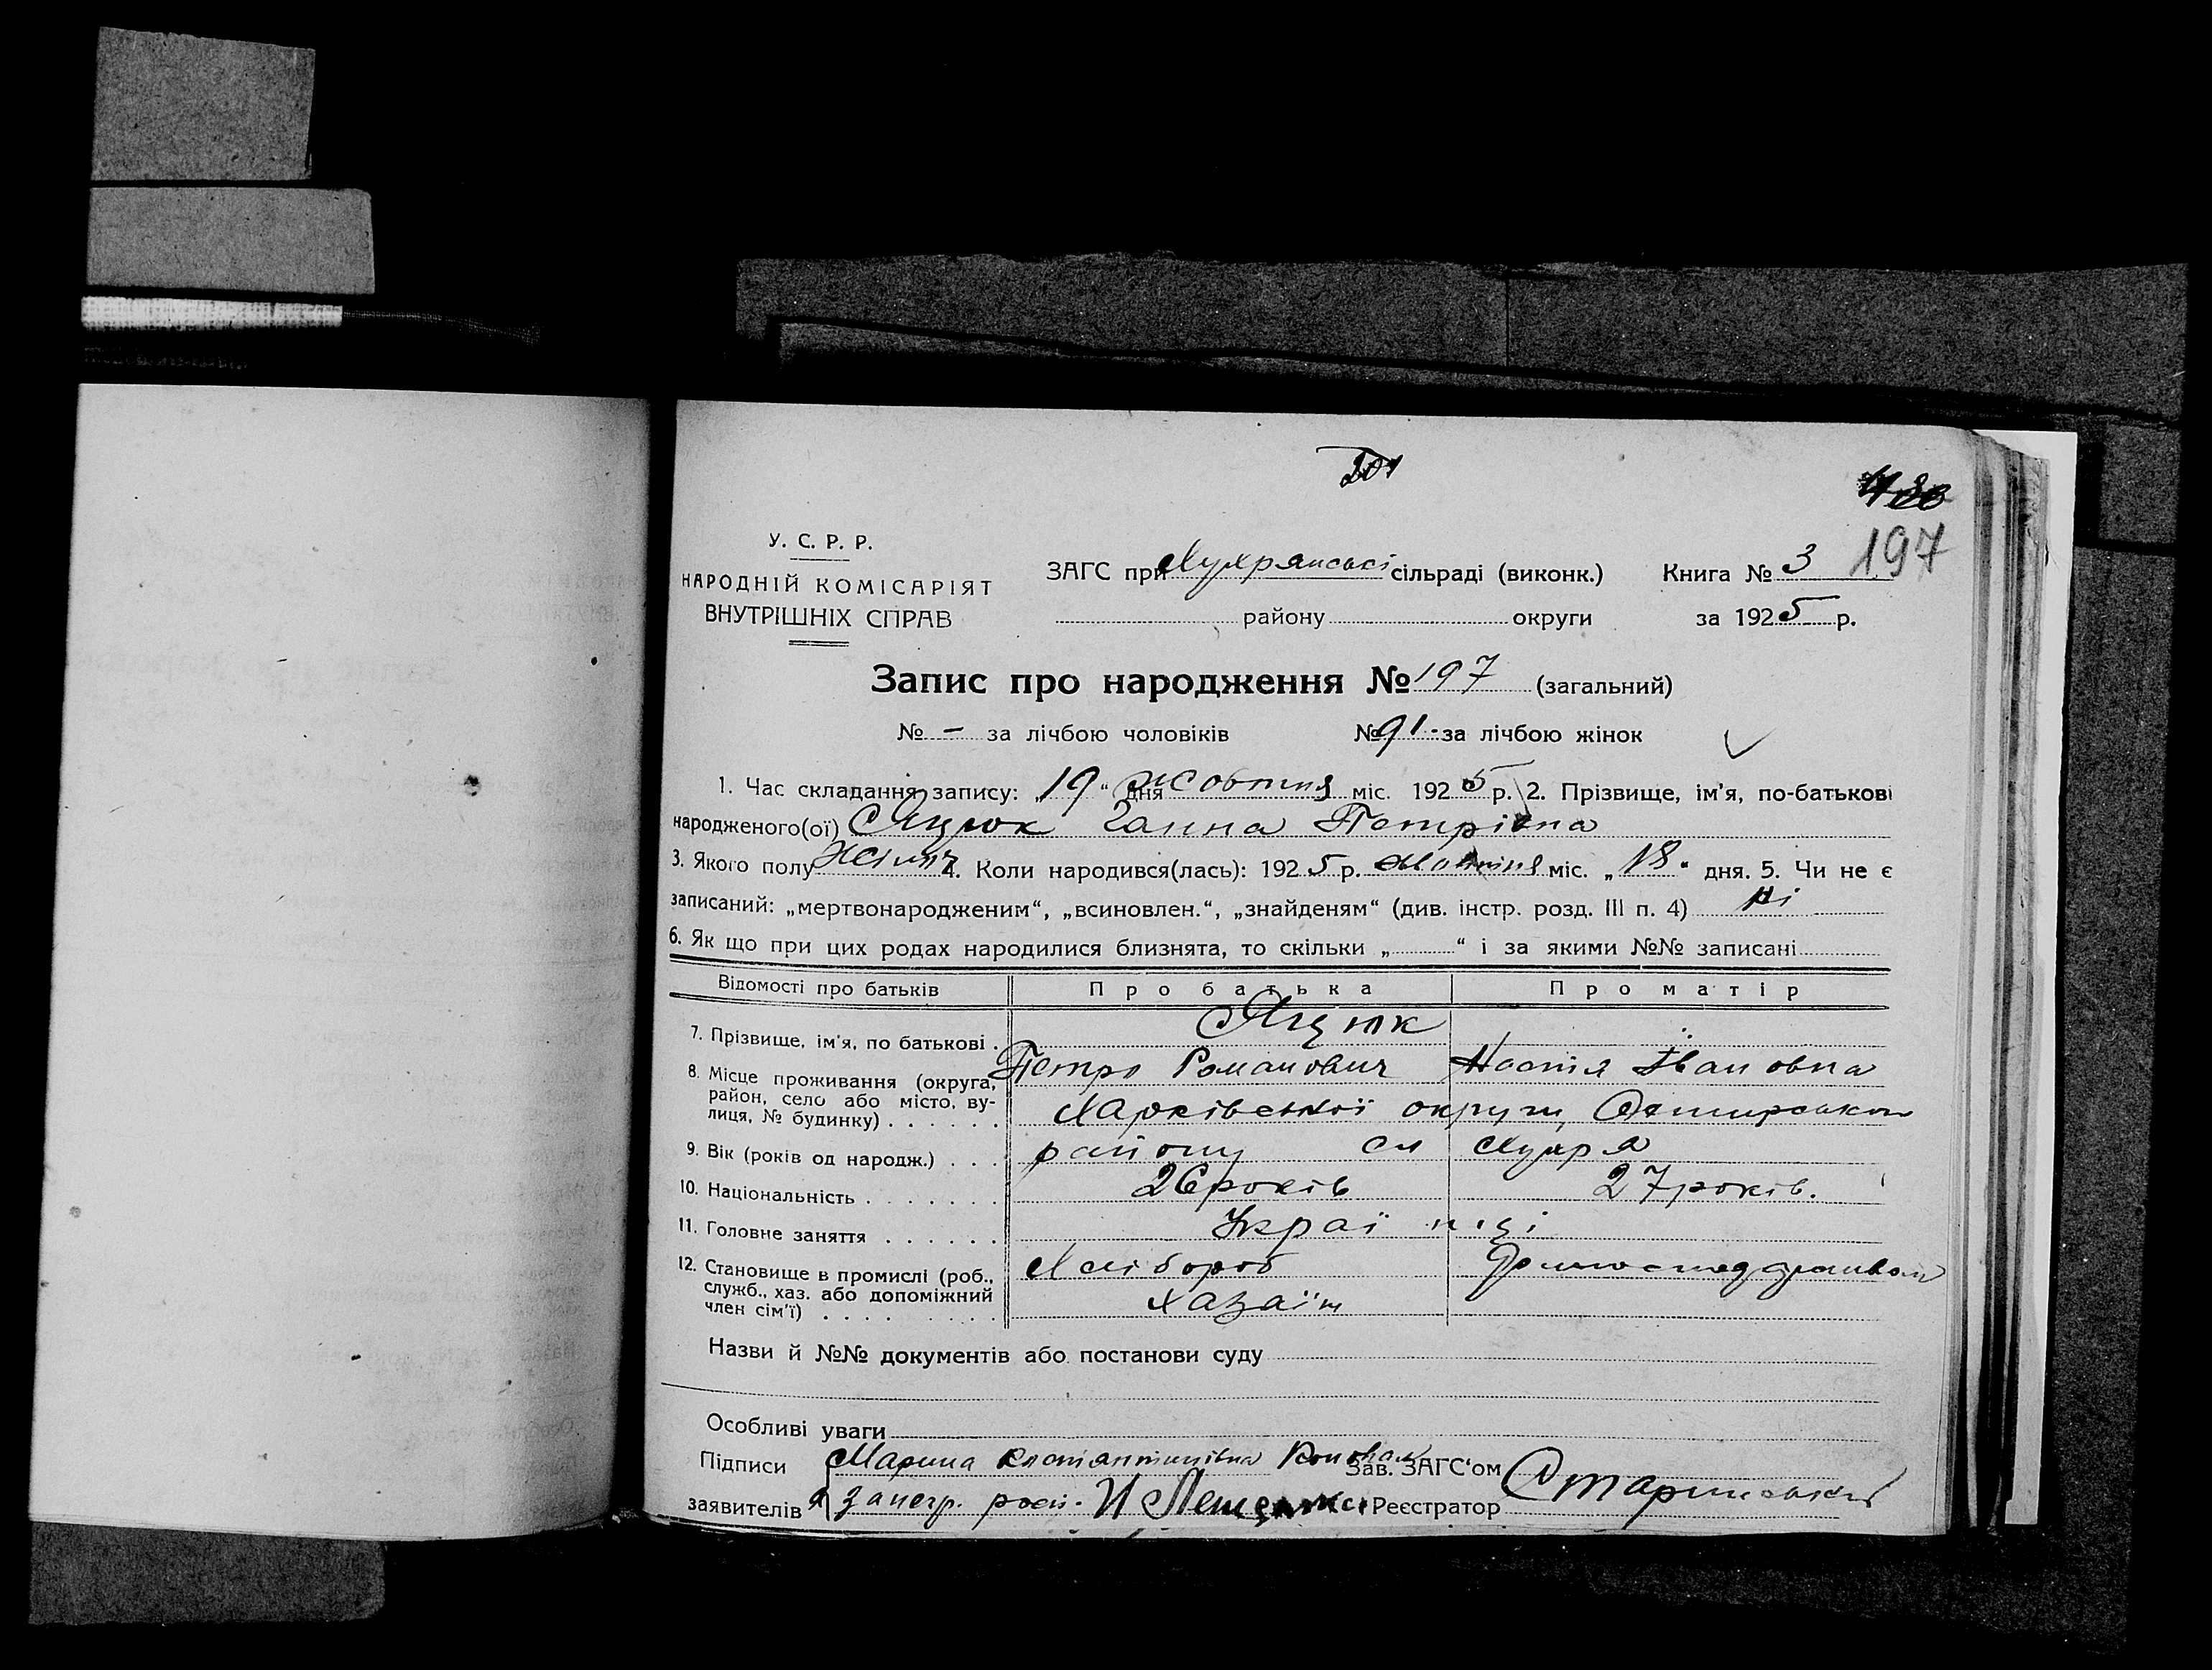 201
197
У. С. Р. Р.
НАРОДНІЙ КОМІСАРІЯТ
ВНУТРІШНІХ СПРАВ
ЗАГС при Хухрянські сільраді (виконк.) Книга № 3
району округи за 1925 р.
Запис про народження № 197 (загальний)
№ – за лічбою чоловіків № 91 за лічбою жінок
1. Час складання запису: „19“ дня жовтня міс. 1925 р. 2. Прізвище, ім'я, по-батькові
народженого(ої) Яцюк Ганна Петрівна
3. Якого полу жіноч 4. Коли народився(лась): 1925 р. жовтня міс. „18“ дня. 5. Чи не є
записаний: „мертвонародженим“, „всиновлен.“, „знайденям“ (див. інстр. розд. III п. 4) ні
6. Як що при цих родах народилися близнята, то скільки „ “ і за якими №№ записані
Відомості про батьків Про батька Про матір
7. Прізвище, ім'я, по батькові . Яцюк
Петро Романович Настія Івановна
8. Місце проживання (округа, район, село або місто, вулиця, № будинку) . . . . . . Харківської округи,
9. Вік (років од народж.) . . . району сл Хухря
10. Національність . . . . . . . 26 років 27 років.
11. Головне заняття . . . . . . Україн ці
12. Становище в промислі (роб., служб., хаз. або допоміжний член сім'ї) . . . . . . . . Хлібороб
хазаїн
Назви й №№ документів або постанови суду
Особливі уваги
Підписи Марина Зав. ЗАГС'ом
заявителів Я Реєстратор